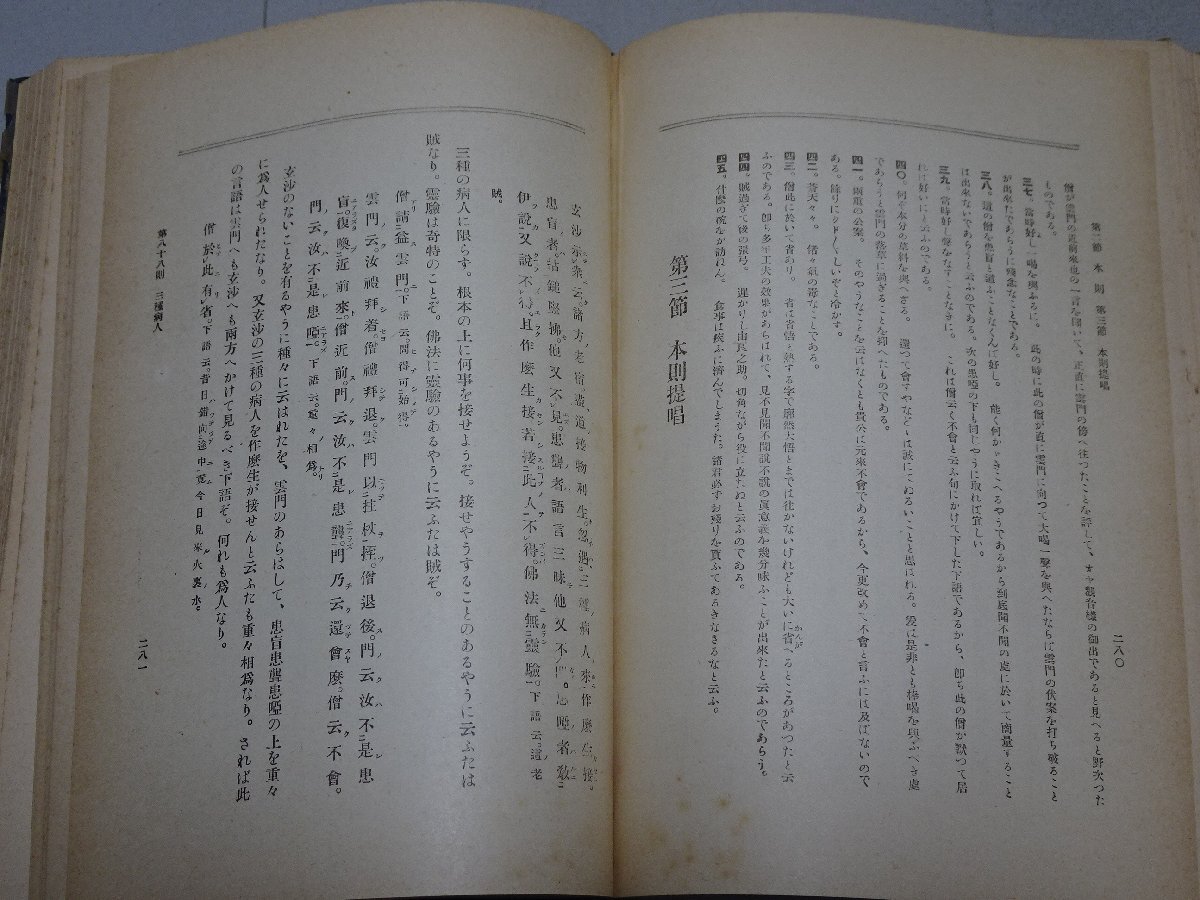 第二節 本則 第三節 本則提唱
二八〇
僧が雲門の近前來也の一言を聞いて、正直に雲門の傍へ往つたことを評して、觀音樣の御出であると見へると野次つた
ものである。
三七。當時好し一喝を與ふるに。 此の時に此の僧が直に雲門に向つて大喝一聲を與へたならば雲門の伏案を打ち破ること
が出來たであらうに殘念なことである。
三八。這の僧を患盲と道ふことなくんば好し。 能く何かゞきこへるやうであるから到底聞不聞の處に於いて商量すること
は出來ないであらうと云ふのである。次の患啞の下も同じやうに取れば宜しい。
三九。當時好し聲をなすことなきに。 これは僧云く不會と云ふ句にかけて下した下語であるから、卽ち此の僧が默つて居
ればに好いにと云ふのである。
四〇。何ぞ本分の草料を與へざる。 還つて會すやなどゝは誠にてぬるいことと思はれる。爰は是非とも棒喝を與ふべき處
であらうと雲門の落草に過ぎることを抑へたものである。
四一。兩重の公案。 そのやうなことを云はなくとも貴公は元來不會であるから、今更改めて不會と言ふには及ばないので
ある。餘りにクドくしいぞと冷かす。
四二。蒼天々々。 偖々氣の毒なことである。
四三。僧此に於いて省あり。 省は省悟と熟する字で廓然大悟とまでは往かないけれども大いに省へるところがあつたと云
ふのである。卽ち多年工夫の效果があらはれて、見不見聞不聞說不說の眞意義を幾分味ふことが出來たと云ふのであらう。
四四。賊過ぎて後の張弓。 遲かりし由良之助。切角ながら役に立たぬと云ふのである。
四五。什麼の碗をか訪ねん。 食事は疾ふに濟んでしまうた。諸君必ずお殘りを貰ふてあるきなさるなと云ふ。
第三節 本則提唱
玄沙示衆云。諸方老宿。盡道接物利生。忽遇三種病人來作麼生接。
患盲者。拈鎚竪拂。他又不見。患聾者。語言三昧他又不聞。患啞者。敎
伊說又說不得。且作麼生接。若接此人不得。佛法無靈驗。下語云。這老
賊。
三種の病人に限らず。根本の上に何事を接せようぞ。接せやうすることのあるやうに云ふたは
賊なり。靈驗は奇特のことぞ。佛法に靈驗のあるやうに云ふたは賊ぞ。
僧請益雲門。下語云。問得可始得。
雲門云。汝禮拜着。僧禮拜退。雲門以拄杖挃。僧退後。門云。汝不是患
盲。復喚近前來。僧近前。門云汝不是患聾。門乃云。還會麼。僧云不會。
門云汝不是患啞。下語云。重々相爲。
玄沙のないことを有るやうに種々に云はれたを、雲門のあらはして、患盲患聾患啞の上を重々
に爲人せられたなり。又玄沙の三種の病人を作麼生が接せんと云ふたも重々相爲なり。されば此
の言語は雲門へも玄沙へも兩方へかけて見るべき下語ぞ。何れも爲人なり。
僧於此有省。下語云。昔日錯向途中覓今日見來火裏水。
第八十八則 三種病人
二八一